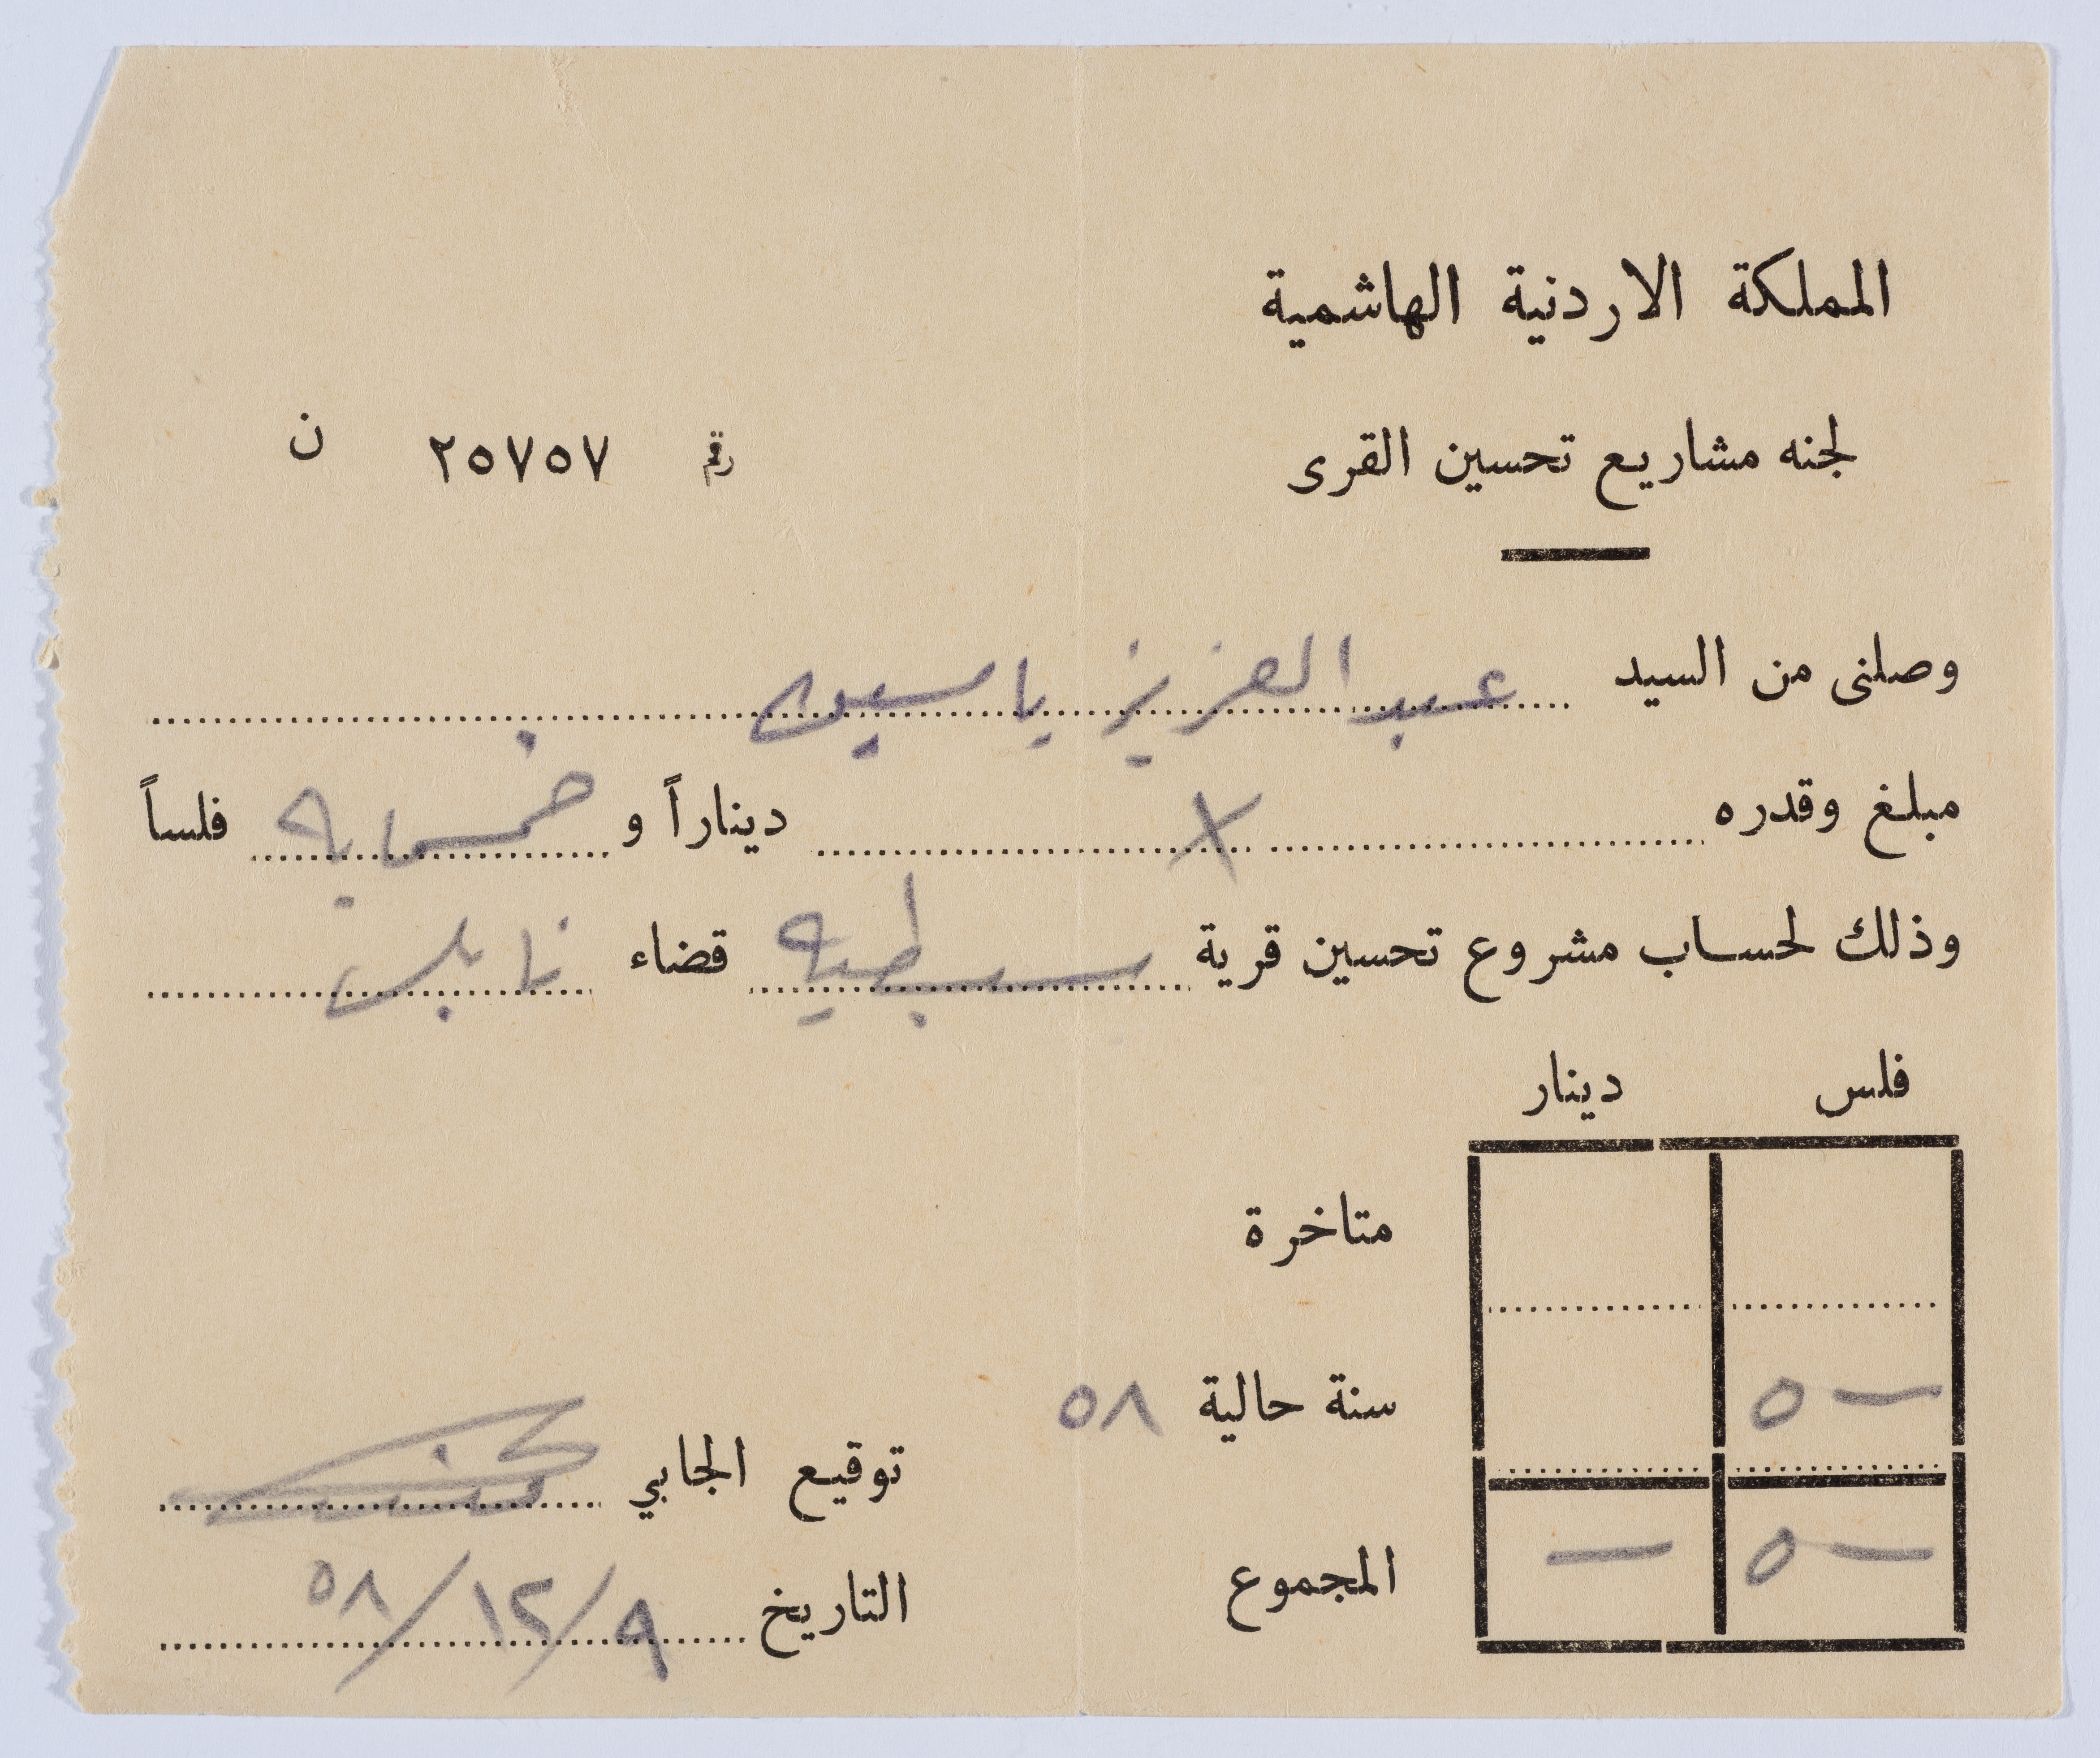 المملكة الاردنية الهاشمية
لجنه مشاريع تحسين القرى
رقم ٢٥٧٥٧ ن
وصلنى من السيد عبد العزيز ياسين
مبلغ وقدره X ديناراً و خمسمايه فلساً
وذلك لحساب مشروع تحسين قرية سبسطيه قضاء نابلس
فلس دينار
متاخرة
٥ — سنة حالية ٥٨
٥ — — المجموع
توقيع الجابي
التاريخ ٩/١٢/٥٨